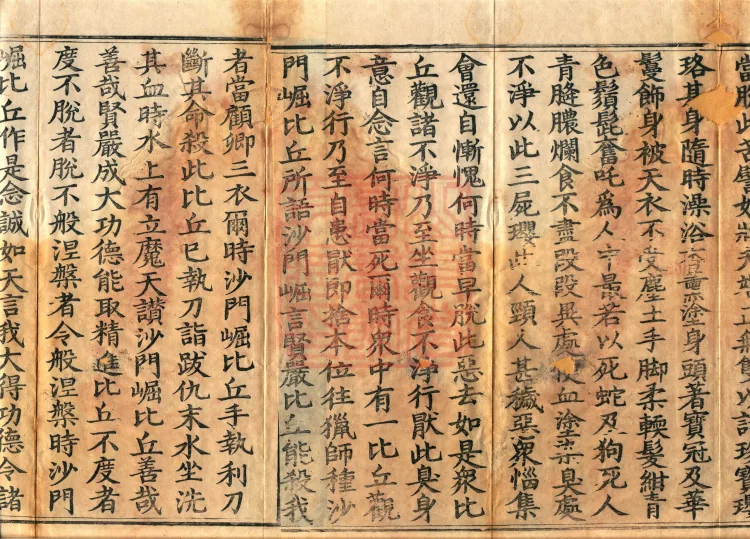 珞其身隨時澡浴香熏塗身頭著寶冠及華
鬘飾身被天衣不受塵土手脚柔輭髮紺青
色鬚髭奮吒爲人中最若以死蛇及狗死人
青膖膿爛食不盡段段異處血塗染臭處
不淨以此三屍瓔此人頸人甚穢惡衆惱集
會還自慚愧何時當早脫此惡去如是衆比
丘觀諸不淨乃至坐觀食不淨行厭此臭身
意自念言何時當死爾時衆中有一比丘觀
不淨行乃至自患厭即捨本位往獵師種沙
門崛比丘所語沙門崛言賢嚴比丘能殺我
者當顧卿三衣爾時沙門崛比丘手執利刀
斷其命殺此比丘已執刀詣跋仇末水坐洗
其血時水上有立魔天讚沙門崛比丘善哉
善哉賢嚴成大功德能取精進比丘不度者
度不脫者脫不般涅槃者令般涅槃時沙門
崛比丘作是念誠如天言我大得功德令諸